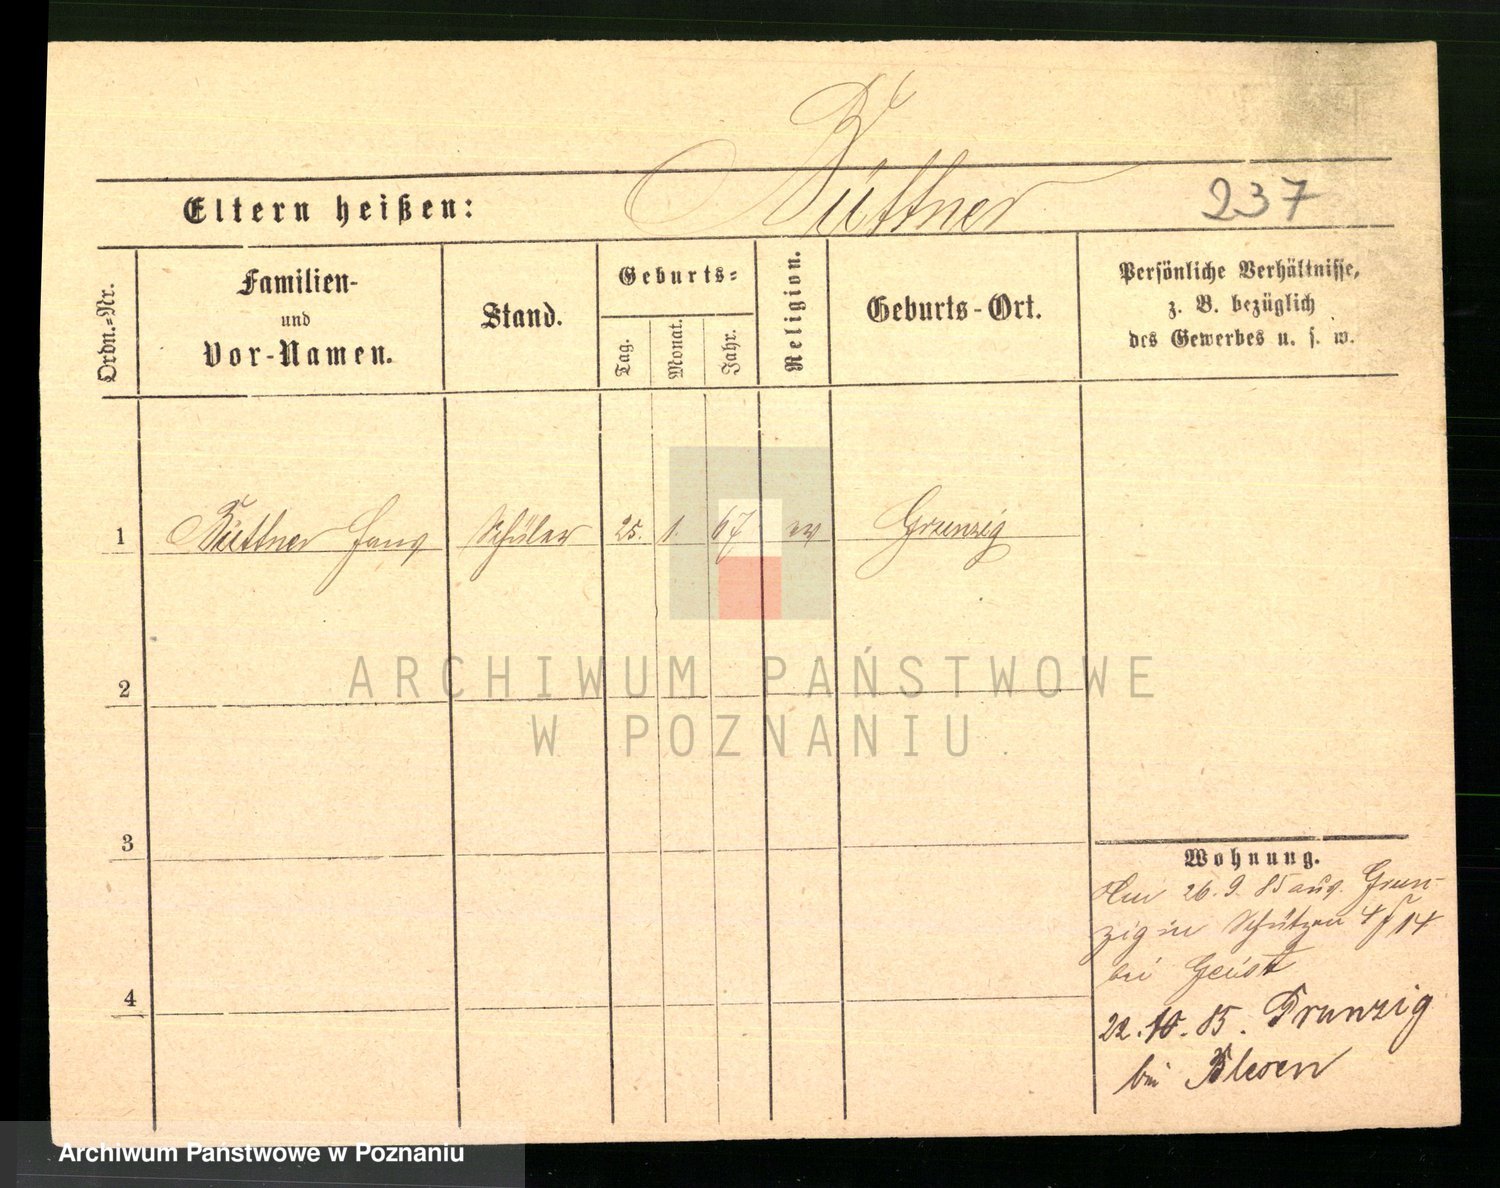 Büttner
Eltern heißen:
237
Ordn.-Nr.
Familien-
und
Vor-Namen.
Stand.
Geburts-
Tag.
Monat.
Jahr.
Religion.
Geburts-Ort.
Persönliche Verhältnisse,
z. B. bezüglich
des Gewerbes u. s. w.
1 Büttner Hans Schüler 25. 1. 67 ev Grunzig
2
3
4
ARCHIWUM PAŃSTWOWE
W POZNANIU
Wohnung.
26.9.85 aus Grun-
zig in Schützen 14
bei
22.10.85. Grunzig
bei Blesen
Archiwum Państwowe w Poznaniu